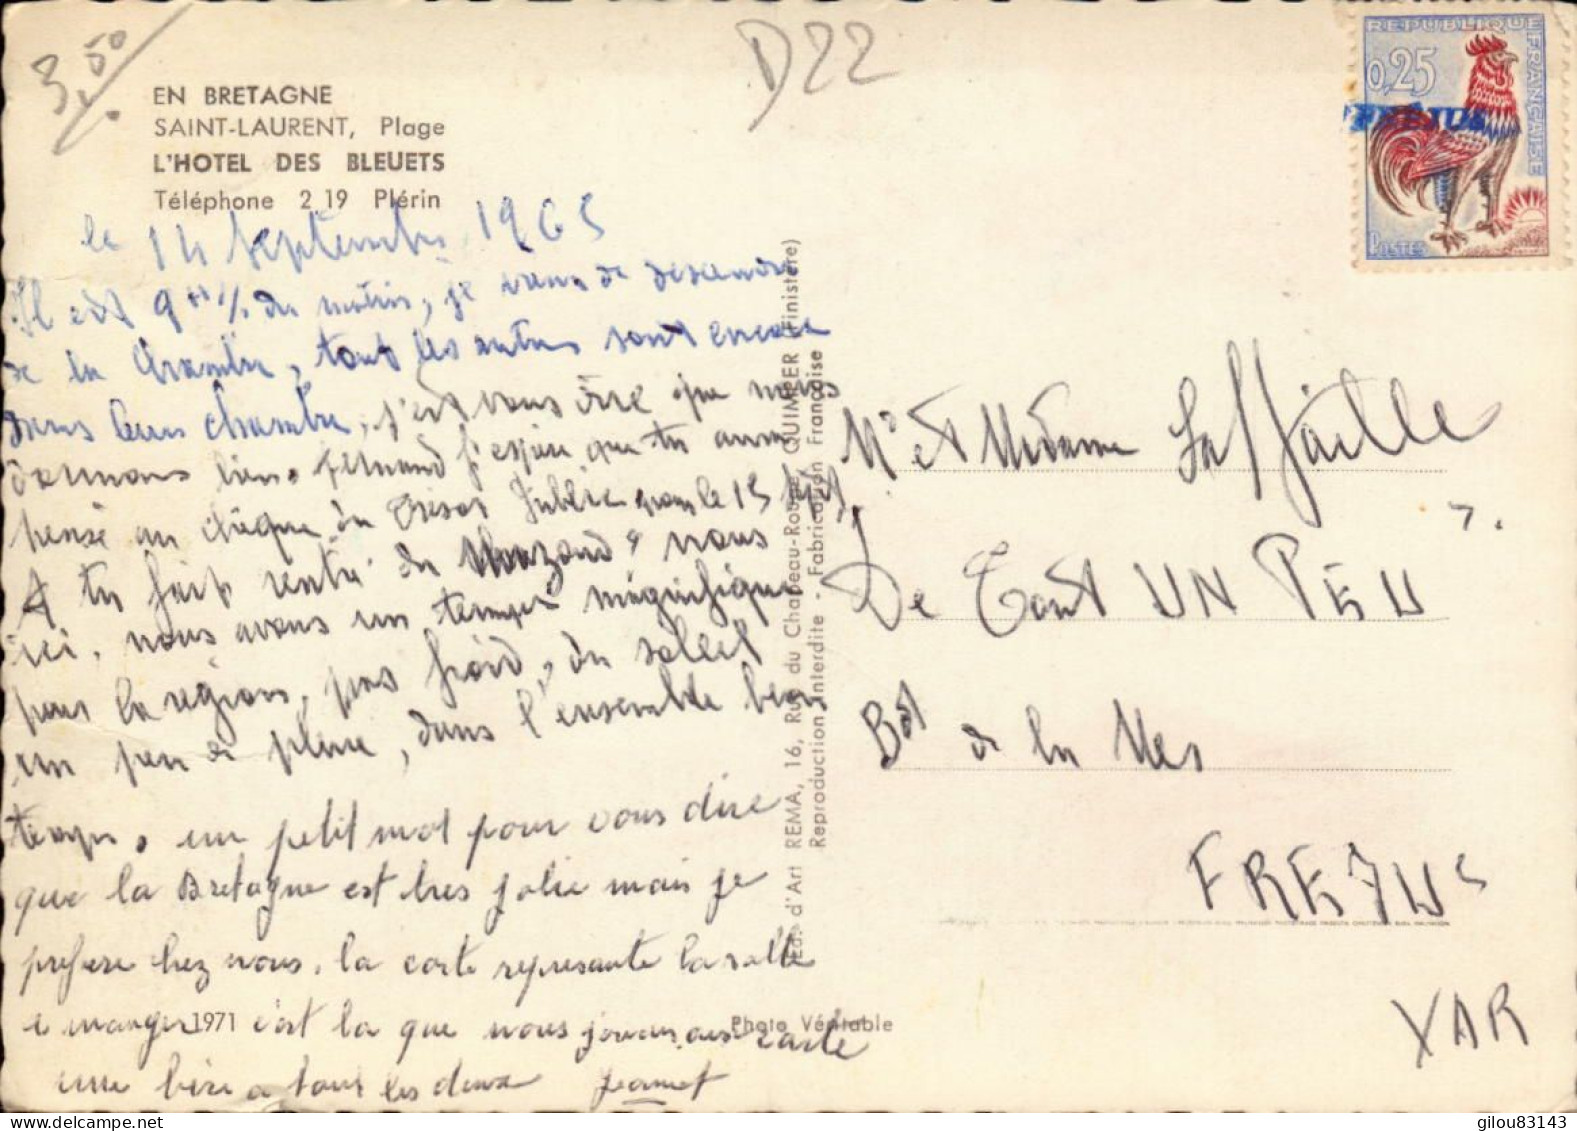 3,50
D22
EN BRETAGNE
SAINT-LAURENT, Plage
L'HOTEL DES BLEUETS
Téléphone 2 19 Plérin
REPUBLIQUE FRANÇAISE
0,25
FREJUS
POSTES
le 14 Septembre 1965
Il est 9 du matin, je viens de descendre
de la chambre, tout les autres sont encore
dans leur chambre, c'est vous dire que nous
dormons bien. Fernand j'espère que tu auras
pensé au chèque du Trésor Public pour le 15
A tu fait rentré du ? nous
ici, nous avons un temps magnifique
pour la région, pas froid, du soleil
un peu de pluie, dans l'ensemble beau
temps. un petit mot pour vous dire
que la Bretagne est tres jolie mais je
prefere chez nous. la carte represante la salle
a manger c'est la que nous jouons aus carte
une bise a tous les deux Jeannet
1971
Photo Véritable
Edit. d'Art REMA, 16, Rue du Chapeau-Rouge QUIMPER (Finistère)
Reproduction Interdite - Fabrication Française
Mr et Madame Laffaille
De Tout UN PEU
Bd de la Mer
FREJUS
VAR
gilou83143